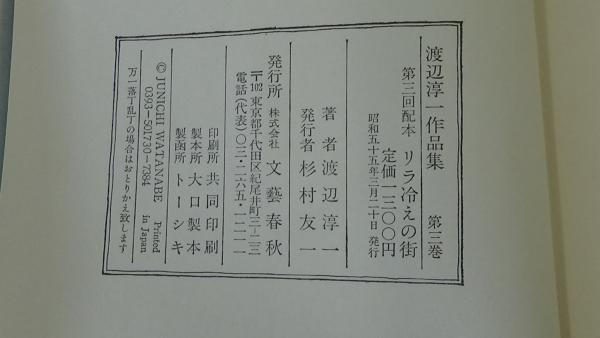 渡辺淳一作品集 第三巻
第三回配本 リラ冷えの街
定価一三〇〇円
昭和五十五年三月二十日 発行
著者 渡辺淳一
発行者 杉村友一
発行所 株式会社 文藝春秋
〒102 東京都千代田区紀尾井町三―二三
電話(代表)〇三・二六五・一二一一
印刷所 共同印刷
製本所 大口製本
製函所 トーシキ
© JUNICHI WATANABE Printed
0393-501730-7384 in Japan
万一落丁乱丁の場合はおとりかえ致します